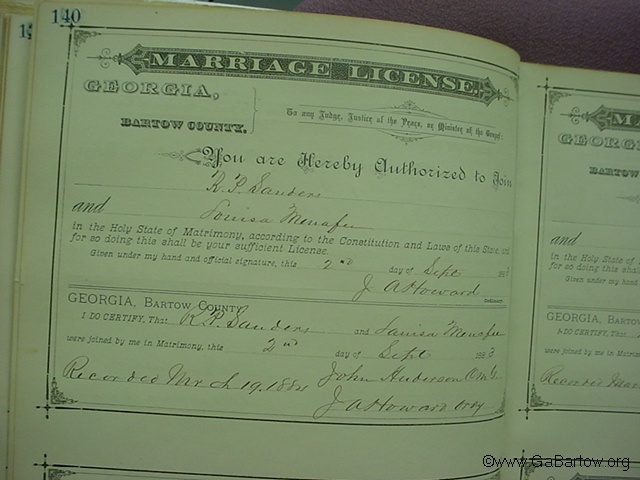 140
MARRIAGE LICENSE.
GEORGIA,
BARTOW COUNTY.
To any Judge, Justice of the Peace, or Minister of the Gospel
You are Hereby Authorized to Join
R. P. Sanders
and Louisa Menafee
in the Holy State of Matrimony, according to the Constitution and Laws of this State, and
for so doing this shall be your sufficient License.
Given under my hand and official signature, this 2nd day of Sept 1883
J A Howard Ordinary.
GEORGIA, BARTOW COUNTY
I DO CERTIFY, That R. P. Sanders and Louisa Menafee
were joined by me in Matrimony, this 2nd day of Sept 1883
Recorded Mrch 19, 1884 John Anderson O.M.G.
J A Howard Ordy
MA
GEORGIA
BARTOW
and
in the Holy State of
for so doing this
Given under my
GEORGIA, BARTOW
I DO CERTIFY, That
were joined by me in
Recorded
©www.GaBartow.org